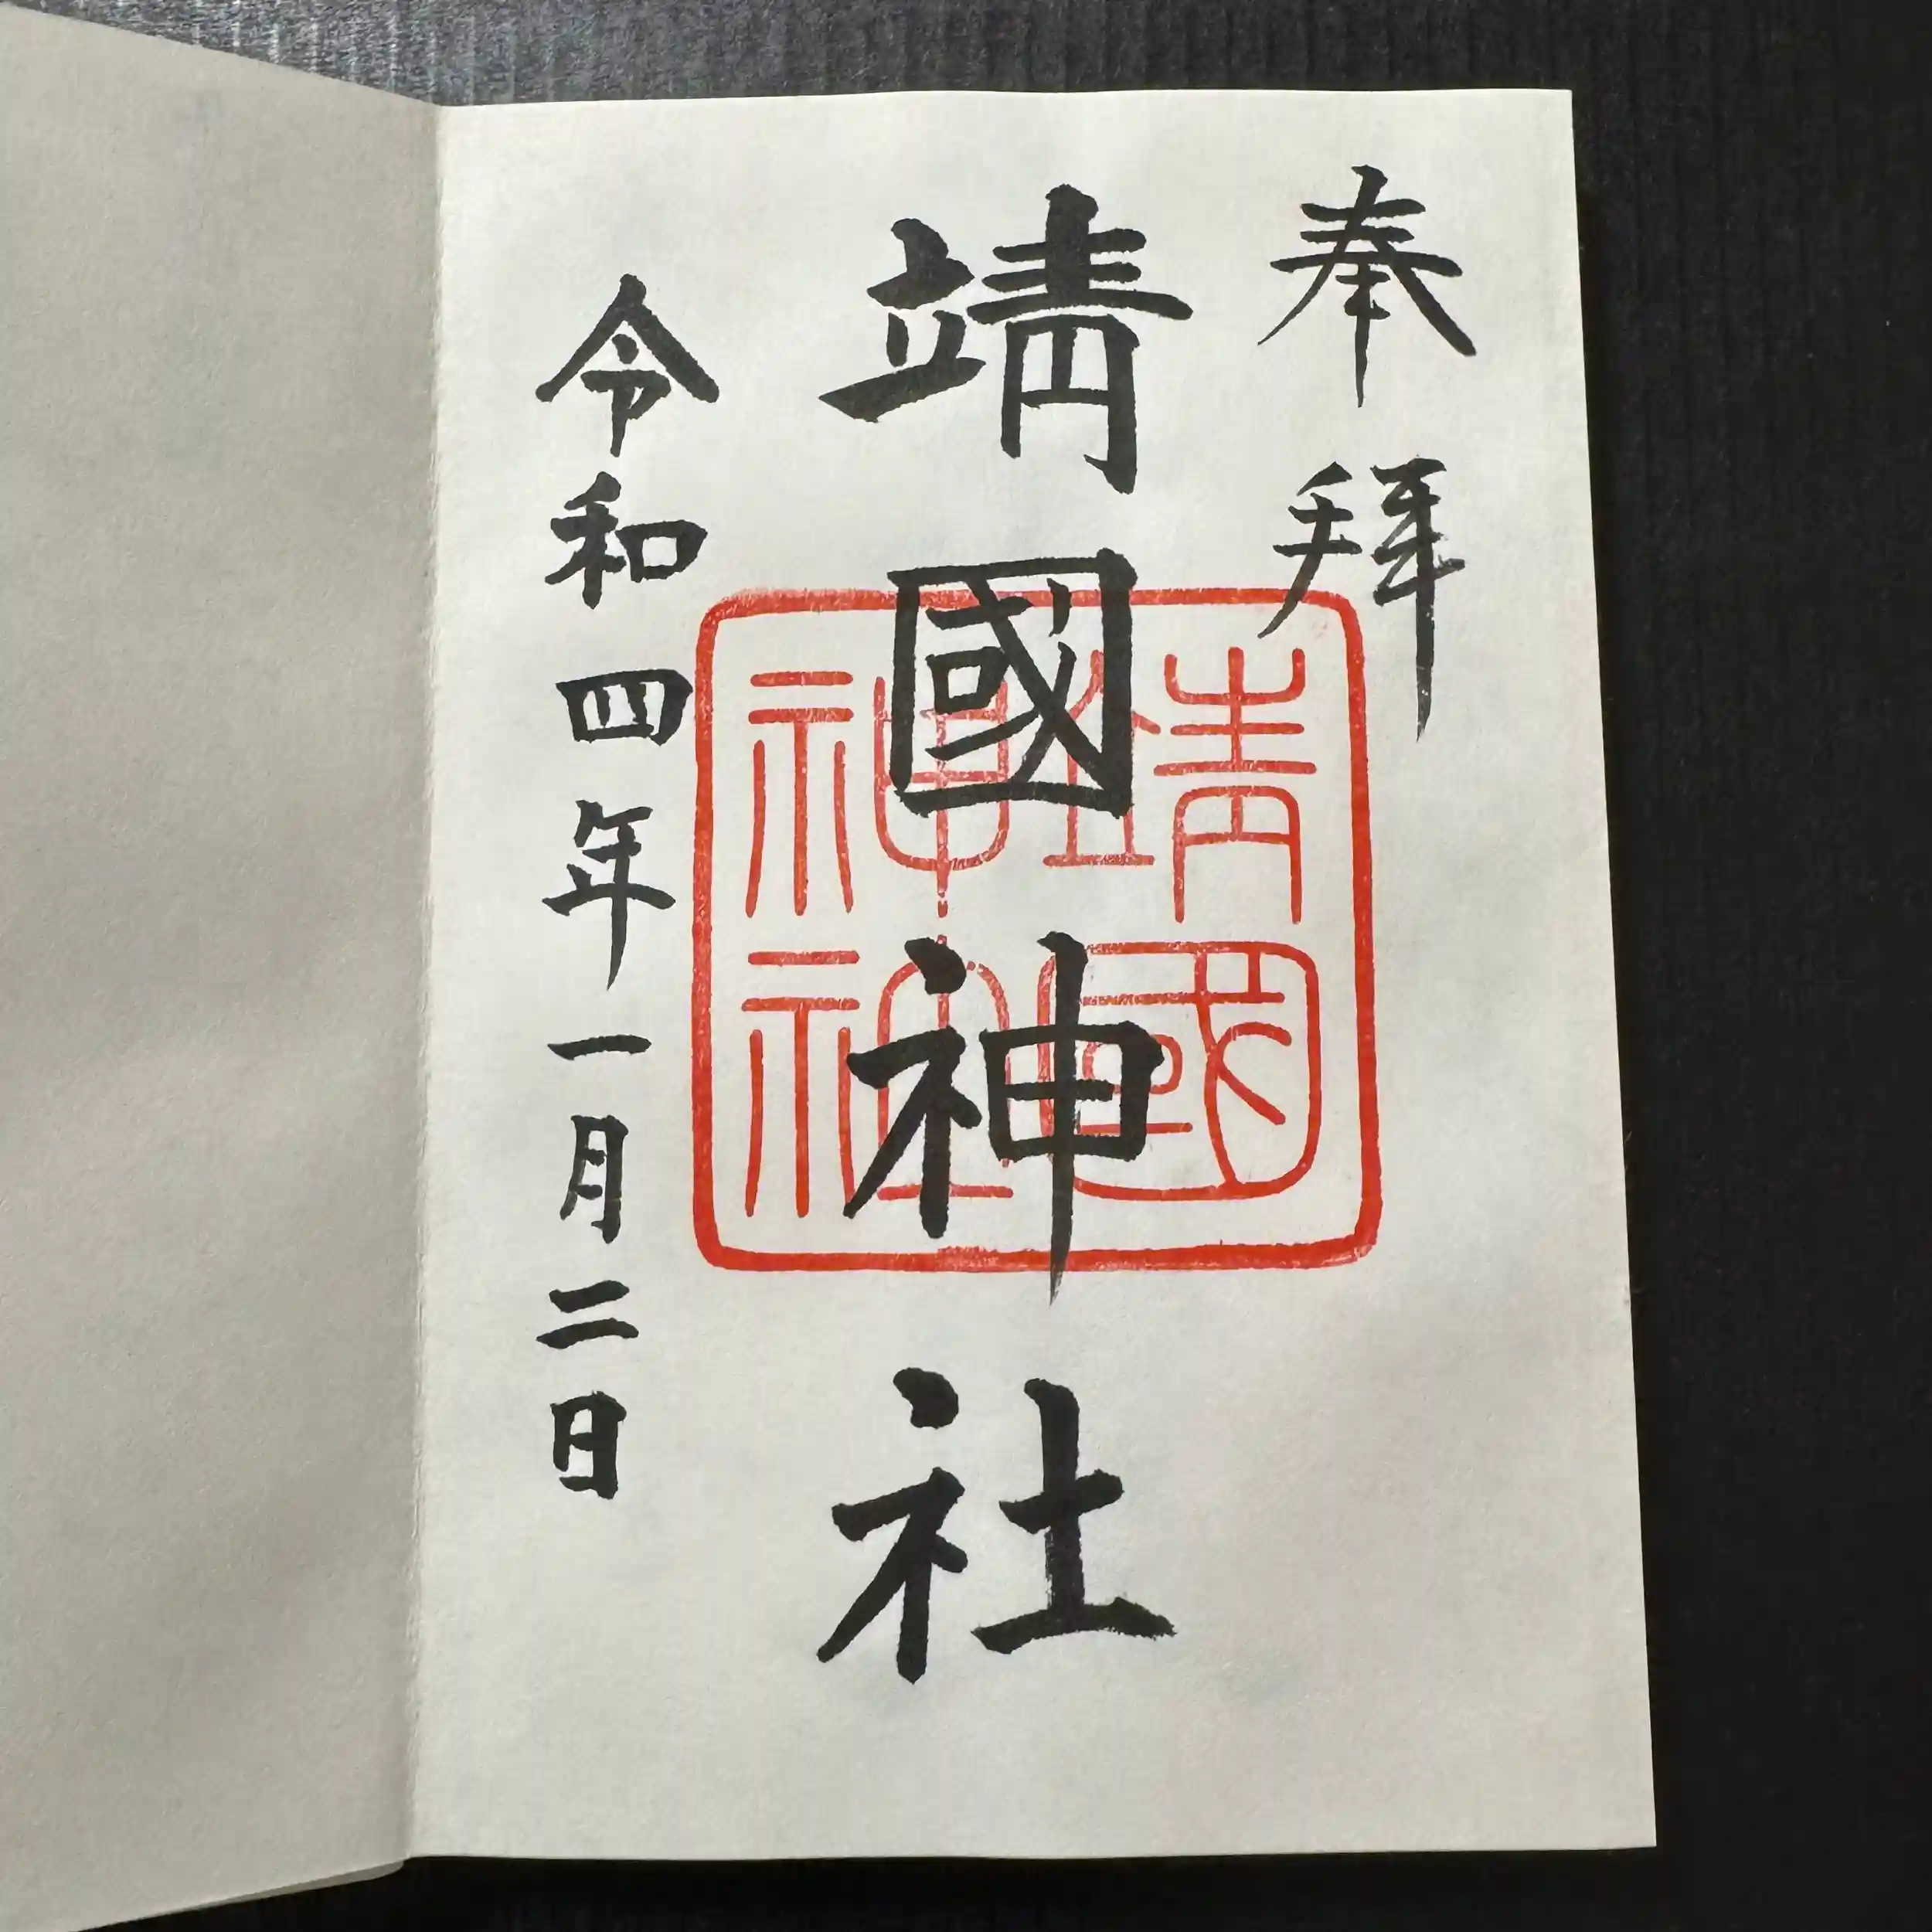 奉拜
靖國神社
令和四年一月二日
靖國
神社